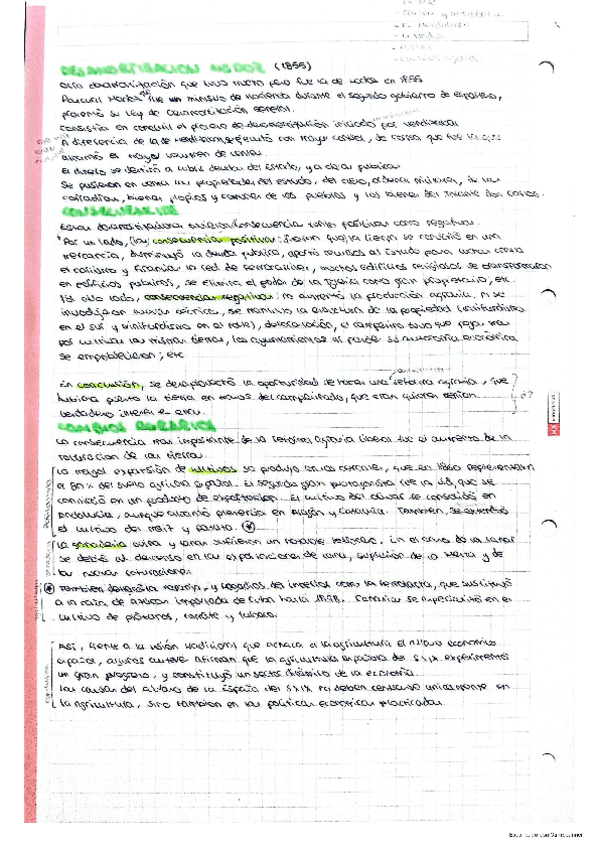 DESAMORTIZACION MADOZ (1855)
Otra desamortización que tuvo mucho peso fue la de Madoz en 1855
Pascual Madoz fue un ministro de Hacienda durante el segundo gobierno de Espartero,
su Ley de Desamortización General.
Consistía en concluir el proceso de desamortización iniciado por Mendizábal
A diferencia de la de Mendizábal, se ejecutó con mayor control, de forma que fue la que
alcanzó el mayor volumen de ventas.
El dinero se destinó a cubrir deudas del Estado, y a obras públicas.
Se pusieron en venta las propiedades del estado, del clero, órdenes militares,
cofradías, bienes propios y comunes de los pueblos y los bienes del infante don Carlos.
CONSECUENCIAS
consecuencias tanto positivas como negativas.
Por un lado, (hay consecuencias positivas: que la tierra se convirtió en una
mercancía, disminuyó la deuda pública, aportó recursos al Estado para luchar contra
el carlismo y financiar la red de ferrocarriles, muchos edificios religiosos se transformaron
en edificios públicos, se elimina el poder de la Iglesia como gran propietario, etc.
Por otro lado, consecuencias negativas: no aumentó la producción agraria, ni se
se mantuvo la estructura de la propiedad (latifundismo
en el sur y minifundismo en el norte), el campesino tuvo que pagar más
por cultivar las mismas tierras, los ayuntamientos al perder su autonomía económica
se empobrecieron, etc
En conclusión, se desaprovechó la oportunidad de hacer una reforma agraria, que
hubiera puesto la tierra en manos del campesinado, que eran quienes tenían
verdadero interés en ella.
CAMBIOS AGRARIOS
La consecuencia más importante de la reforma agraria liberal fue el aumento de la
roturación de las tierras.
La mayor expansión de cultivos se produjo en los cereales, que en 1860 representaban
el 80% del suelo agrícola español. El segundo gran protagonista fue la vid, que se
convirtió en un producto de exportación. El cultivo del olivar se consolidó en
Andalucía, aunque alcanzó presencia en Aragón y Cataluña. También, se extendió
el cultivo del maíz y patata.
La ganadería ovina y lanar sufrieron un notable retroceso. En el caso de la lanar
se debió al descenso en las exportaciones de lana, supresión de la Mesta y de
las nuevas roturaciones.
También destacaba naranja, y regadíos del interior como la remolacha, que sustituyó
a la caña de azúcar importada de Cuba hasta 1898. Canarias se especializó en el
cultivo de plátanos, tomate y tabaco.
Así, frente a la visión tradicional que achaca a la agricultura el atraso económico
español, algunos autores afirman que la agricultura española del S.XIX experimentó
un gran progreso, y constituyó un sector dinámico de la economía.
Las causas del atraso de la España del S.XIX no deben centrarse únicamente en
la agricultura, sino también en las políticas económicas practicadas.